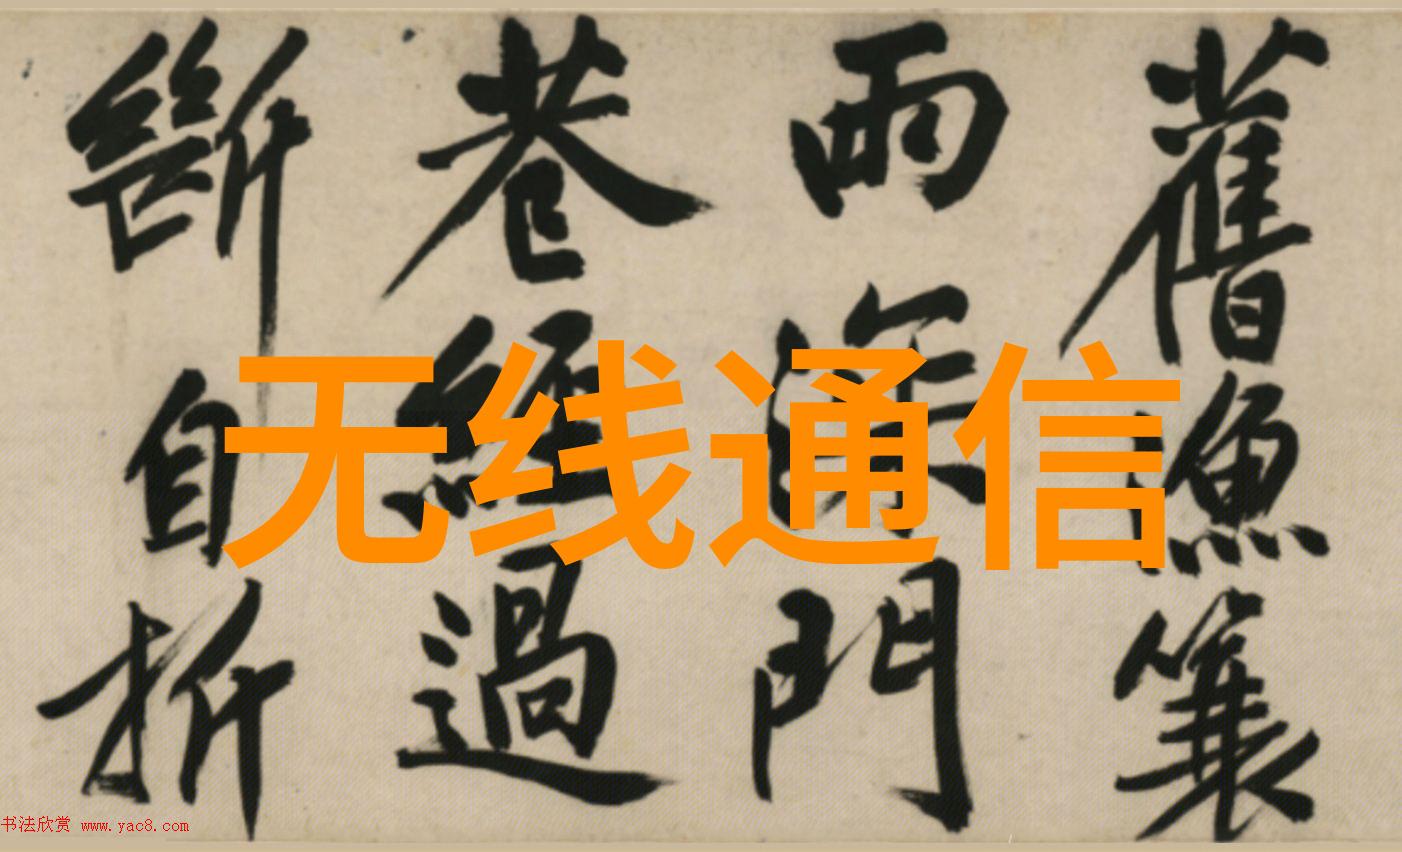 舊漁簑
雨深門
巷經過
斷自折
无线通信
书法欣赏 www.yac8.com